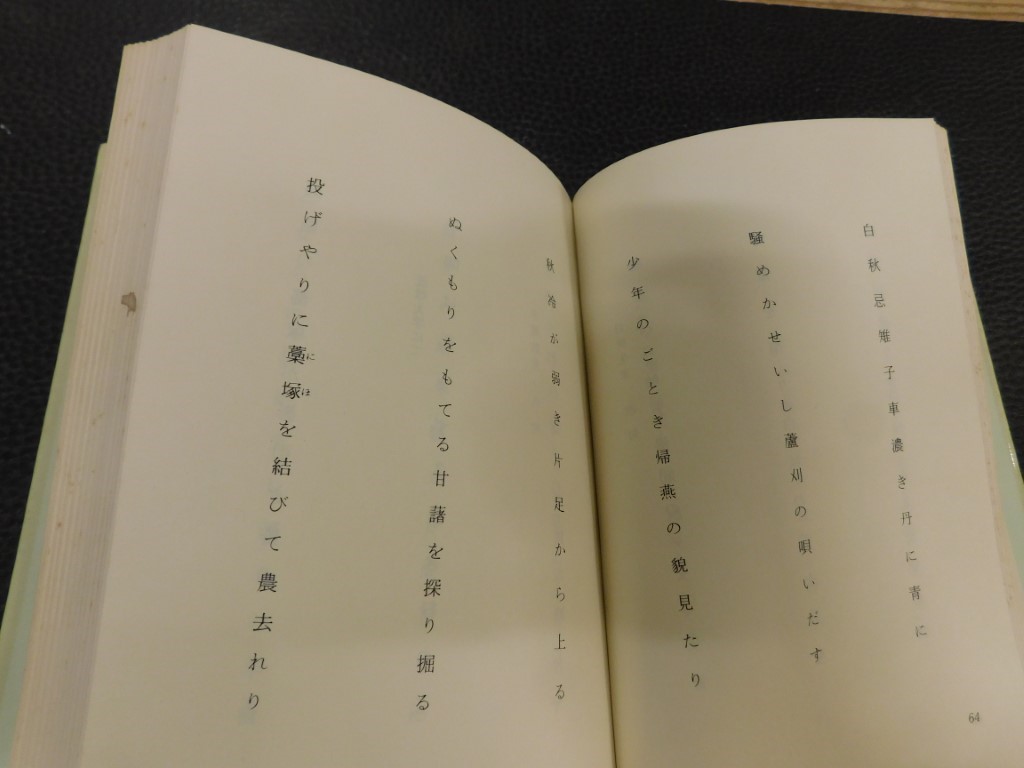 白秋忌雉子車濃き丹に青に
騒めかせいし蘆刈の唄いだす
少年のごとき帰燕の貌見たり
64
秋冷が弱き片足から上る
ぬくもりをもてる甘藷を探り掘る
投げやりに藁塚を結びて農去れり
にほ